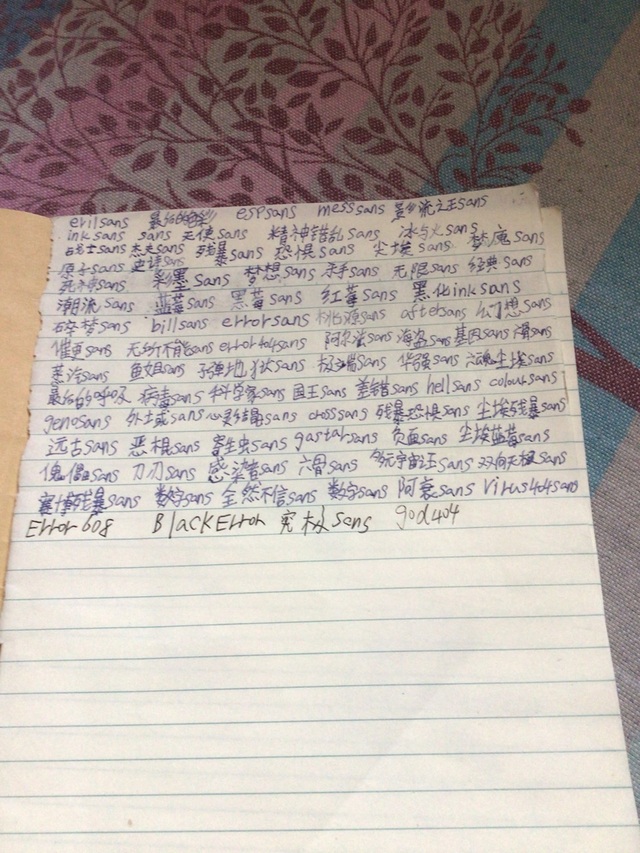 erilsans 最后的 espsans messsans 流之王sans
inksans sans 天使sans 精神错乱sans 冰与火sans
士sans 杰夫sans 残暴sans 恐惧sans 尘埃sans 梦魇sans
原子sans 史诗sans 彩墨sans 梦想sans 杀手sans 无限sans 经典sans
死神sans
潮流sans 蓝莓sans 黑莓sans 红莓sans 黑化inksans
碎梦sans billsans errorsans 桃源sans aftersans 幻想sans
催更sans 无所不能sans error404sans 阿尔法sans 海盗sans 基因sans 滑sans
蒸汽sans 鱼姐sans 子弹地狱sans 极端sans 华强sans 魂尘埃sans
最后的呼吸 病毒sans 科学家sans 国王sans 差错sans hellsans coloursans
genosans 外土或sans 心灵结晶sans crosssans 残暴恐惧sans 尘埃残暴sans
远古sans 恶棍sans 寄生虫sans gastarsans 负面sans 尘埃蓝莓sans
傀儡sans 刀刀sans 感染者sans 六骨sans 多元宇宙王sans 双向天极sans
残暴sans 数字sans 全然不信sans 数字sans 阿衰sans Virus404sans
Error608 BlackError 究极sans god404